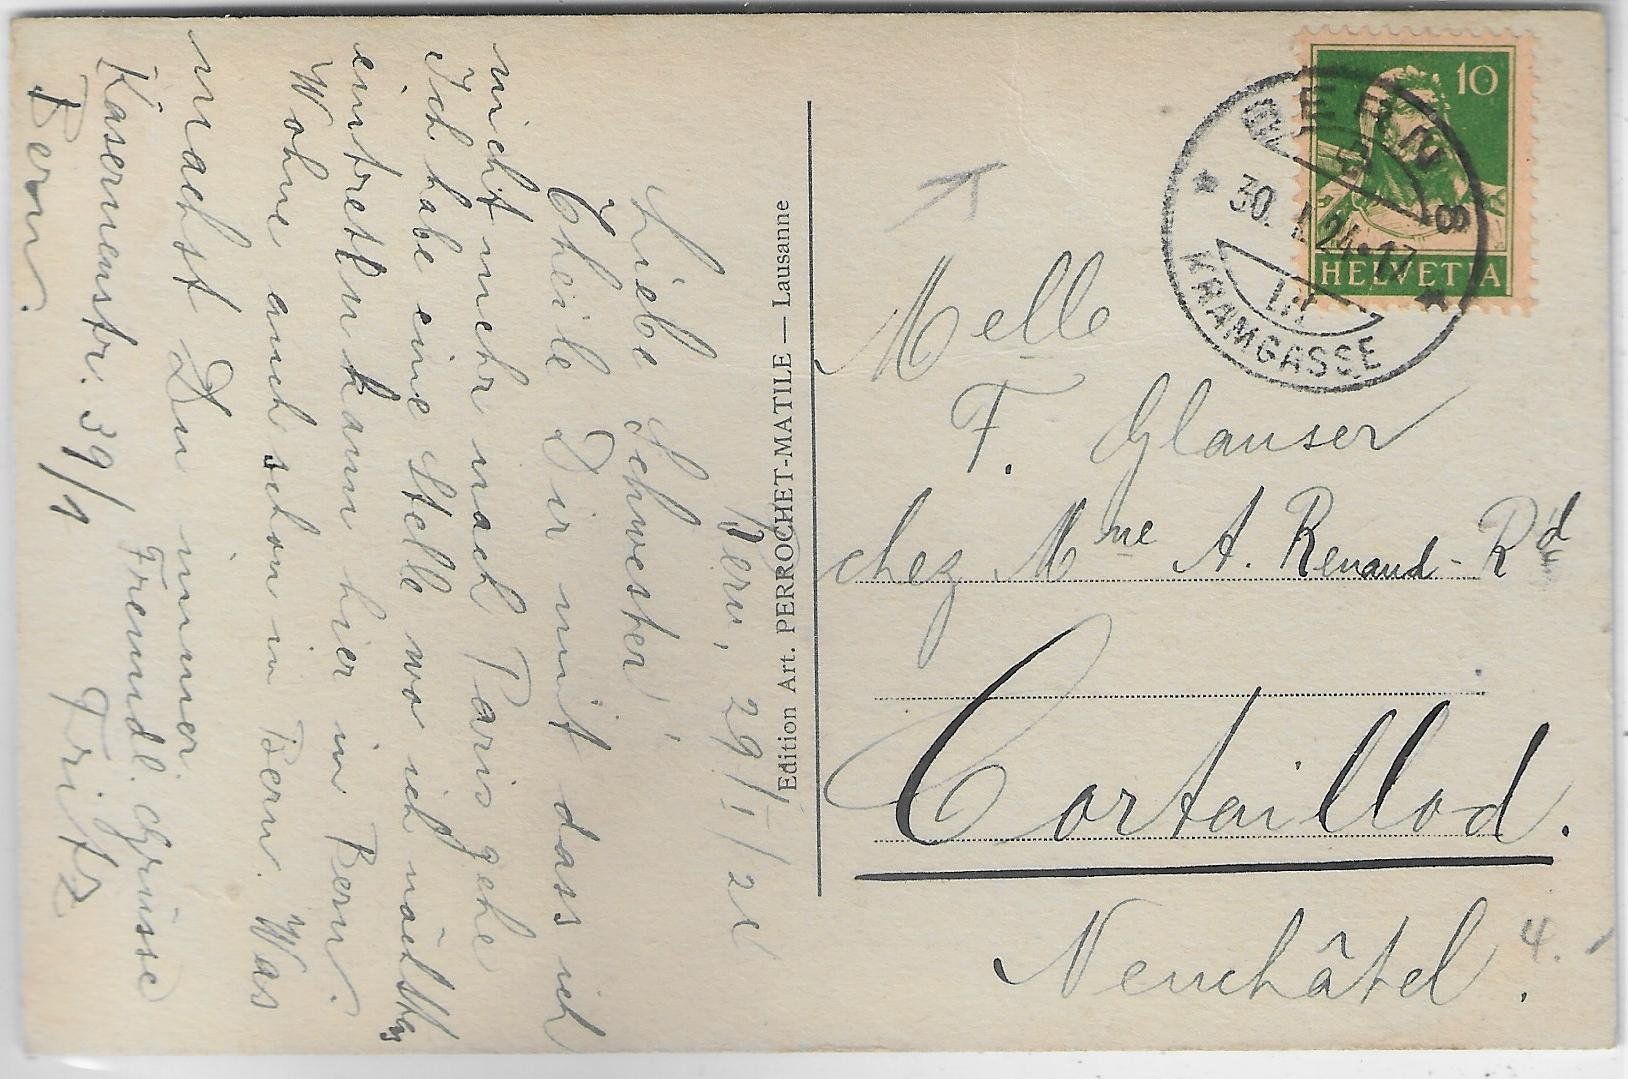 Bern, 29/I/24
Liebe Schwester,
Theile Dir mit dass ich
nicht mehr nach Paris gehe
Ich habe eine Stelle wo ich nächstens
eintretten kann hier in Bern.
Wohne auch schon in Bern. Was
machst Du immer.
Kasernenstr. 39/1 Freundl. Grüsse
Bern. Fritz
Edition Art. PERROCHET-MATILE — Lausanne
10
HELVETIA
BERN 8
30. I. 24.-17
KRAMGASSE
Melle
F. Glauser
chez Mme A. Renaud-Rd
Cortaillod.
Neuchâtel.
4.